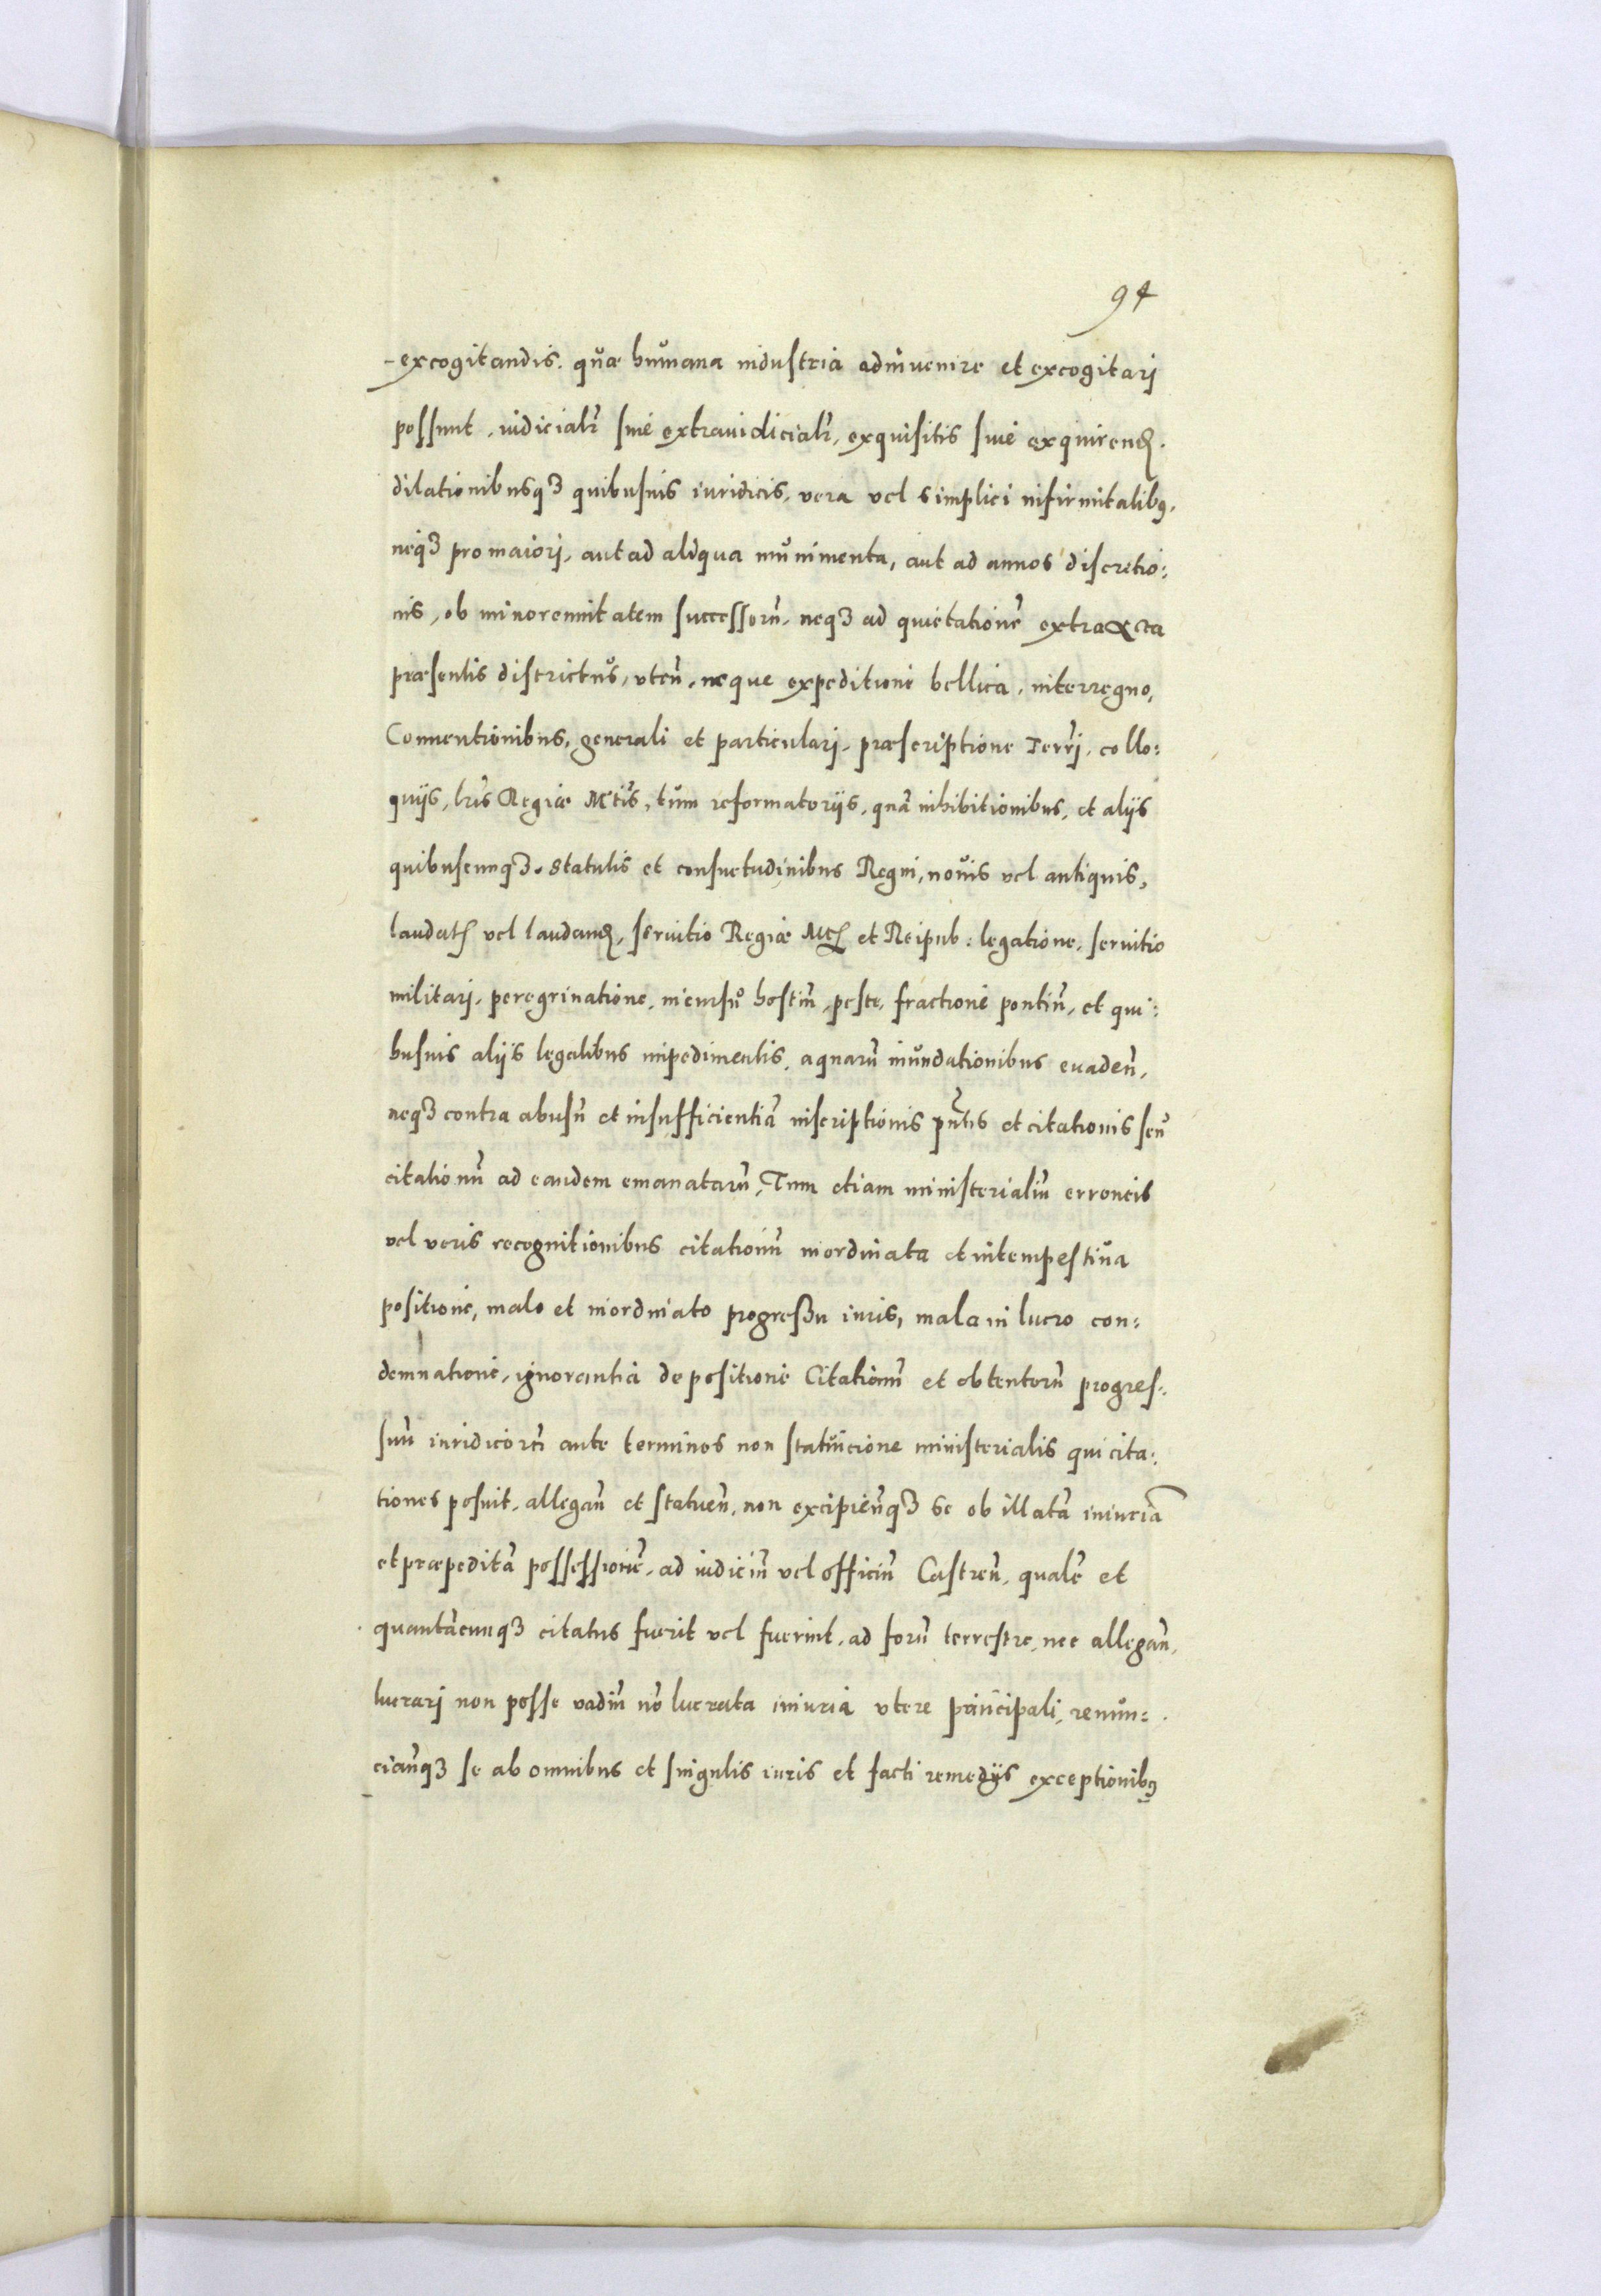 94
-excogitandis. quæ humana industria adinvenire et excogitari
possunt, iudicialr̃ siue extraiudicialr̃, exquisitis siue exquirend.
dilationibusqꝫ quibusuis iuridicis, vera vel simplici infirmitatibꝰ,
neqꝫ pro maiorj, aut ad aliqua munimenta, aut ad annos discretio:
nis, ob minorennitatem successorũ, neqꝫ ad quietationẽ extra acta
præsentis districtus, vteñ, neque expeditione bellica, interregno,
Conuentionibus, generali et particularj, præscriptione Terrj, collo:
quijs, lr̃is Regiæ Mtis̃, tum reformatorijs, quã inhibitionibus, et alijs
quibuscunqꝫ. Statutis et consuetudinibus Regni, nouis vel antiquis,
laudatꝭ vel laudand, seruitio Regiæ Mtꝭ et Reipub: legatione, seruitio
militarj, peregrinatione, incursu hostiũ, peste, fractione pontiũ, et qui:
busuis alijs legalibus impedimentis, aquarũ inundationibus euadeñ,
neqꝫ contra abusũ et insufficientiã inscriptionis pñtis et citationis seu
citationũ ad eandem emanatarũ, Tum etiam ministerialiũ erroneis
vel veris recognitionibus citationũ inordinata et intempestiua
positione, malo et inordinato progreßu iuris, mala in lucro con:
demnatione, ignorantia de positione Citationũ et obtentorũ progres:
suũ iuridicorũ ante terminos non statuicione ministerialis qui cita:
tiones posuit, allegañ et statueñ, non excipieñqꝫ se ob illatã iniuriã
et præpeditã possessionẽ, ad iudiciũ vel officiũ Castreñ, qualẽ et
quantãcunqꝫ citatus fuerit vel fuerint, ad forũ terrestre, nec allegañ,
lucrari non posse vadiũ nõ lucrata iniuria vtere principali, renun:
ciañqꝫ se ab omnibus et singulis iuris et facti remedijs exceptionibꝰ